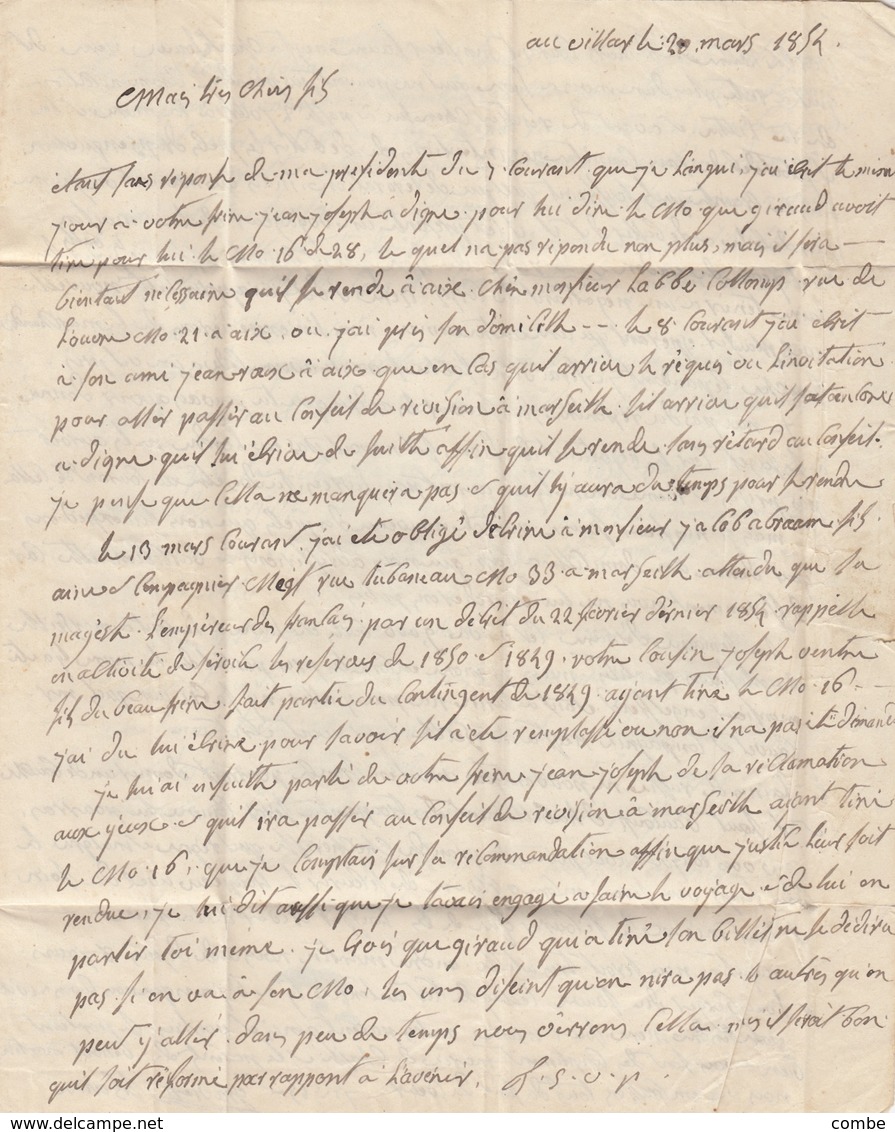 au villar le 20 mars 1854.
Mais très chers fils
étant sans réponse de ma présidente du 7 courant que je langui, j'ai écrit le même
jour a votre frère jean joseph a digne pour lui dire le No que giraud avoit
tiré pour lui le No 16 de 28, le quel na pas répondu non plus, mais il sera
bientant nécessaire quil se rende â aix chez monsieur Labbé Collomp rue de
Louvre No 21 a aix, ou j'ai pris son domicille -- le 8 courant j'ai écrit
à son ami jean roux â aix que en cas quil arriva le réquis ou linvitation
pour aller passér au Conseil de révision â marseille sil arriva quil soit encore
a digne quil lui écriva de suitte affin quil se rende sans rétard au Conseil.
je pense que cella ne manquera pas & quil ly aura du temps pour se rendre
le 13 mars courant j'ai été obligé décrire â monsieur jacob abraam fils
ainé & Compagnier Negt rue tubaneau No 33 a marseille attendu que sa
majesté L'empéreur des francais par un décrêt du 22 février dérnier 1854 rappelle
en activité de sérvice les réserves de 1850 & 1849. votre cousin joseph ventre
fils du beau frère fait partie du Contingent de 1849 ayant tiré le No 16 --
j'ai du lui écrire pour savoir sil a été remplassé ou non il na pas été démandé
je lui ai ensuitte parlé de votre frère jean joseph de sa réclamation
aux yeux & quil ira passér au Conseil de révision â marseille ayant tiré
le No 16, que je comptais sur sa récommandation affin que justice leur soit
rendue, je lui dit aussi que je tavais engagé a faire le voyage & de lui en
parler toi même. je crois que giraud qui a tiré son billèt ne se dédira
pas si on va â son No, les uns diseint qu'on nira pas & autrês qu'on
peut y allér dans peu de temps nous vêrrons cella mais il serait bon
quil soit réformé par rapport a L'avenir. T.S.V.P.
combe
www.delcampe.net